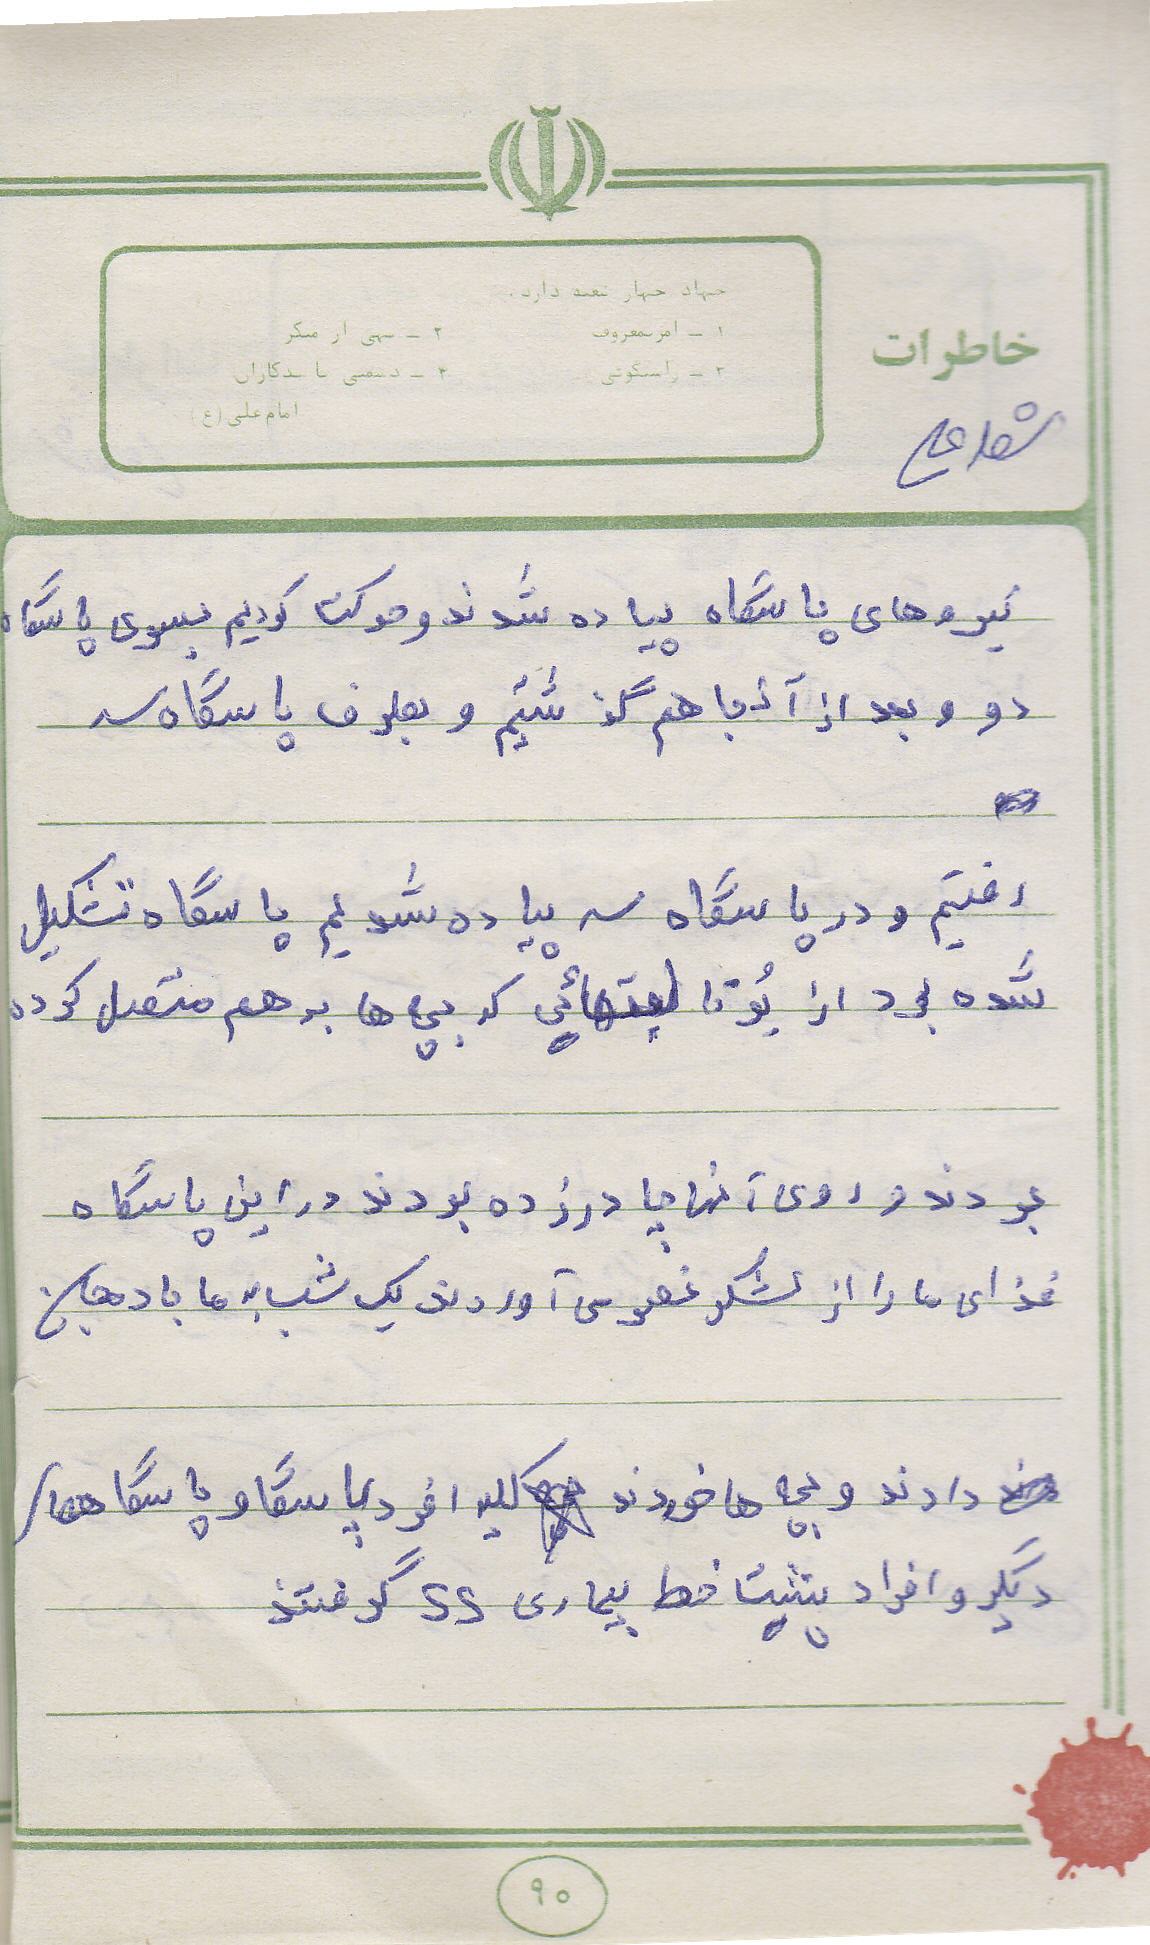 جهاد چهار شعبه دارد.
۱ - امر بمعروف ۲ - نهی از منکر
۳ - راستگوئی ۴ - دشمنی با بدکاران
امام علی (ع)
خاطرات
نیروهای پاسگاه پیاده شدند و حرکت کردیم بسوی پاسگاه
دو و بعد از آنجا هم گذشتیم و بطرف پاسگاه سه
رفتیم و در پاسگاه سه پیاده شدیم پاسگاه تشکیل
شده بود از که بچه ها به هم متصل کرده
بودند و روی آنها چادر زده بودند در این پاسگاه
غذای ما را از لشکر می آوردند یک شب به ما بادمجان
دادند و بچه ها خوردند کلیه افراد پاسگاه و پاسگاههای
دیگر و افراد خط بیماری گرفتند
۹۰